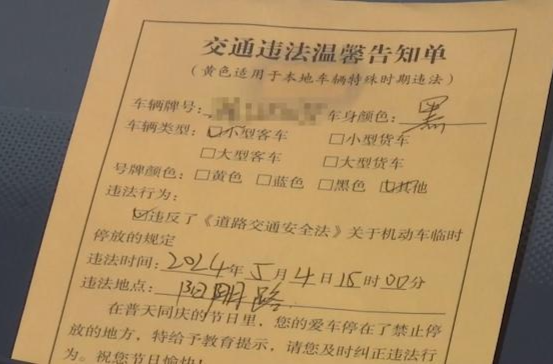 交通违法温馨告知单
（黄色适用于本地车辆特殊时期违法）
车辆牌号： 车身颜色：黑
车辆类型：☑小型客车 □小型货车
□大型客车 □大型货车
号牌颜色：□黄色 □蓝色 □黑色 ☑其他
违法行为：
☑违反了《道路交通安全法》关于机动车临时
停放的规定
违法时间：2024年5月4日18时00分
违法地点： 路
在普天同庆的节日里，您的爱车停在了禁止停
放的地方，特给予教育提示，请您及时纠正违法行
为。祝您节日愉快！